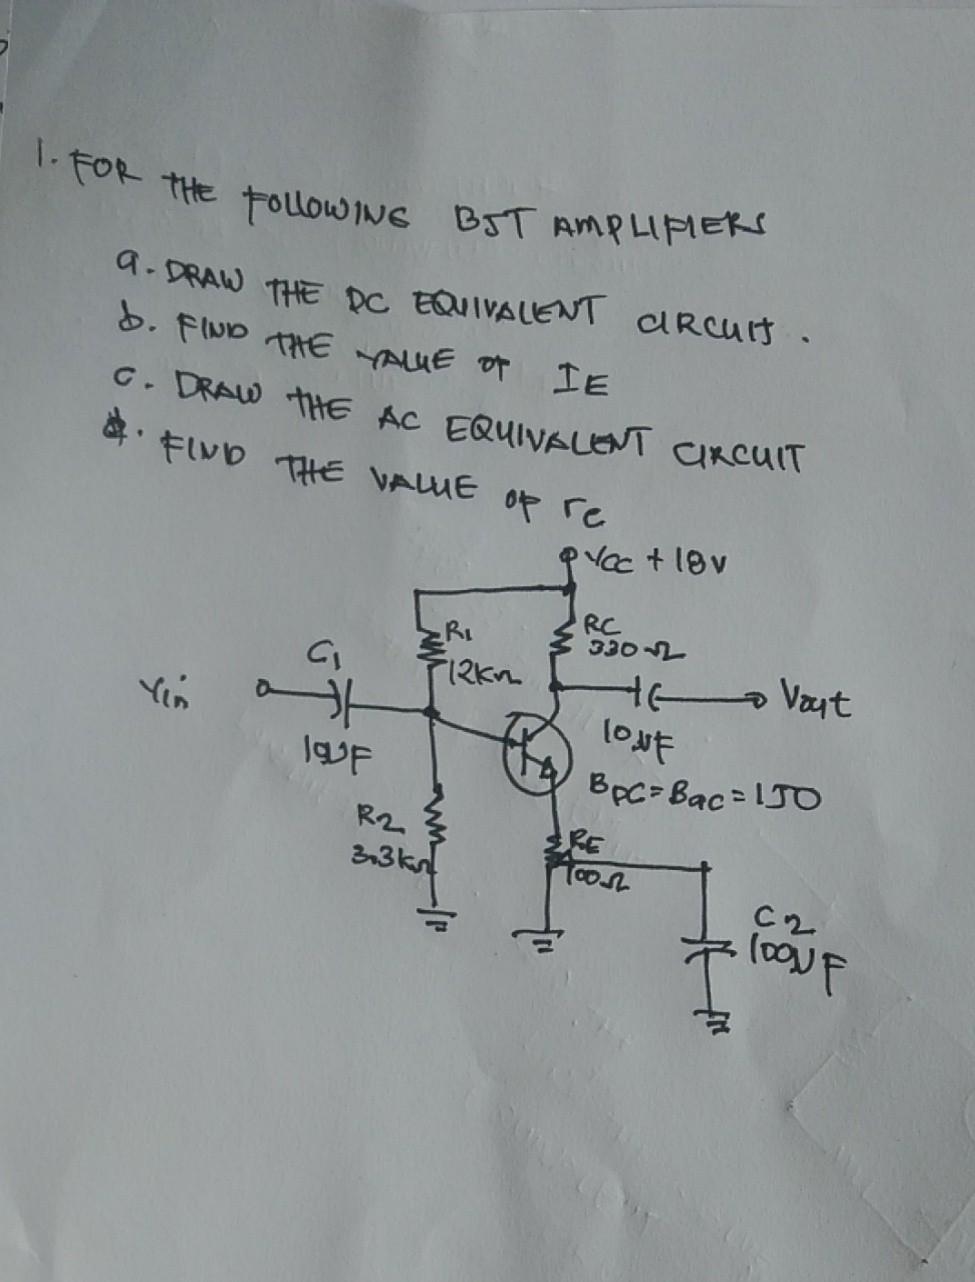 1. FOR THE FOLLOWING BJT AMPLIFIERS
a. DRAW THE DC EQUIVALENT CIRCUIT.
b. FIND THE VALUE OF IE
C. DRAW THE AC EQUIVALENT CIRCUIT
d. FIND THE VALUE OF re
VCC +18V
R1
12KΩ
RC
330Ω
C1
Vin
10µF
Vout
10µF
BDC=Bac=150
R2
3.3kΩ
RE
100Ω
C2
100µF